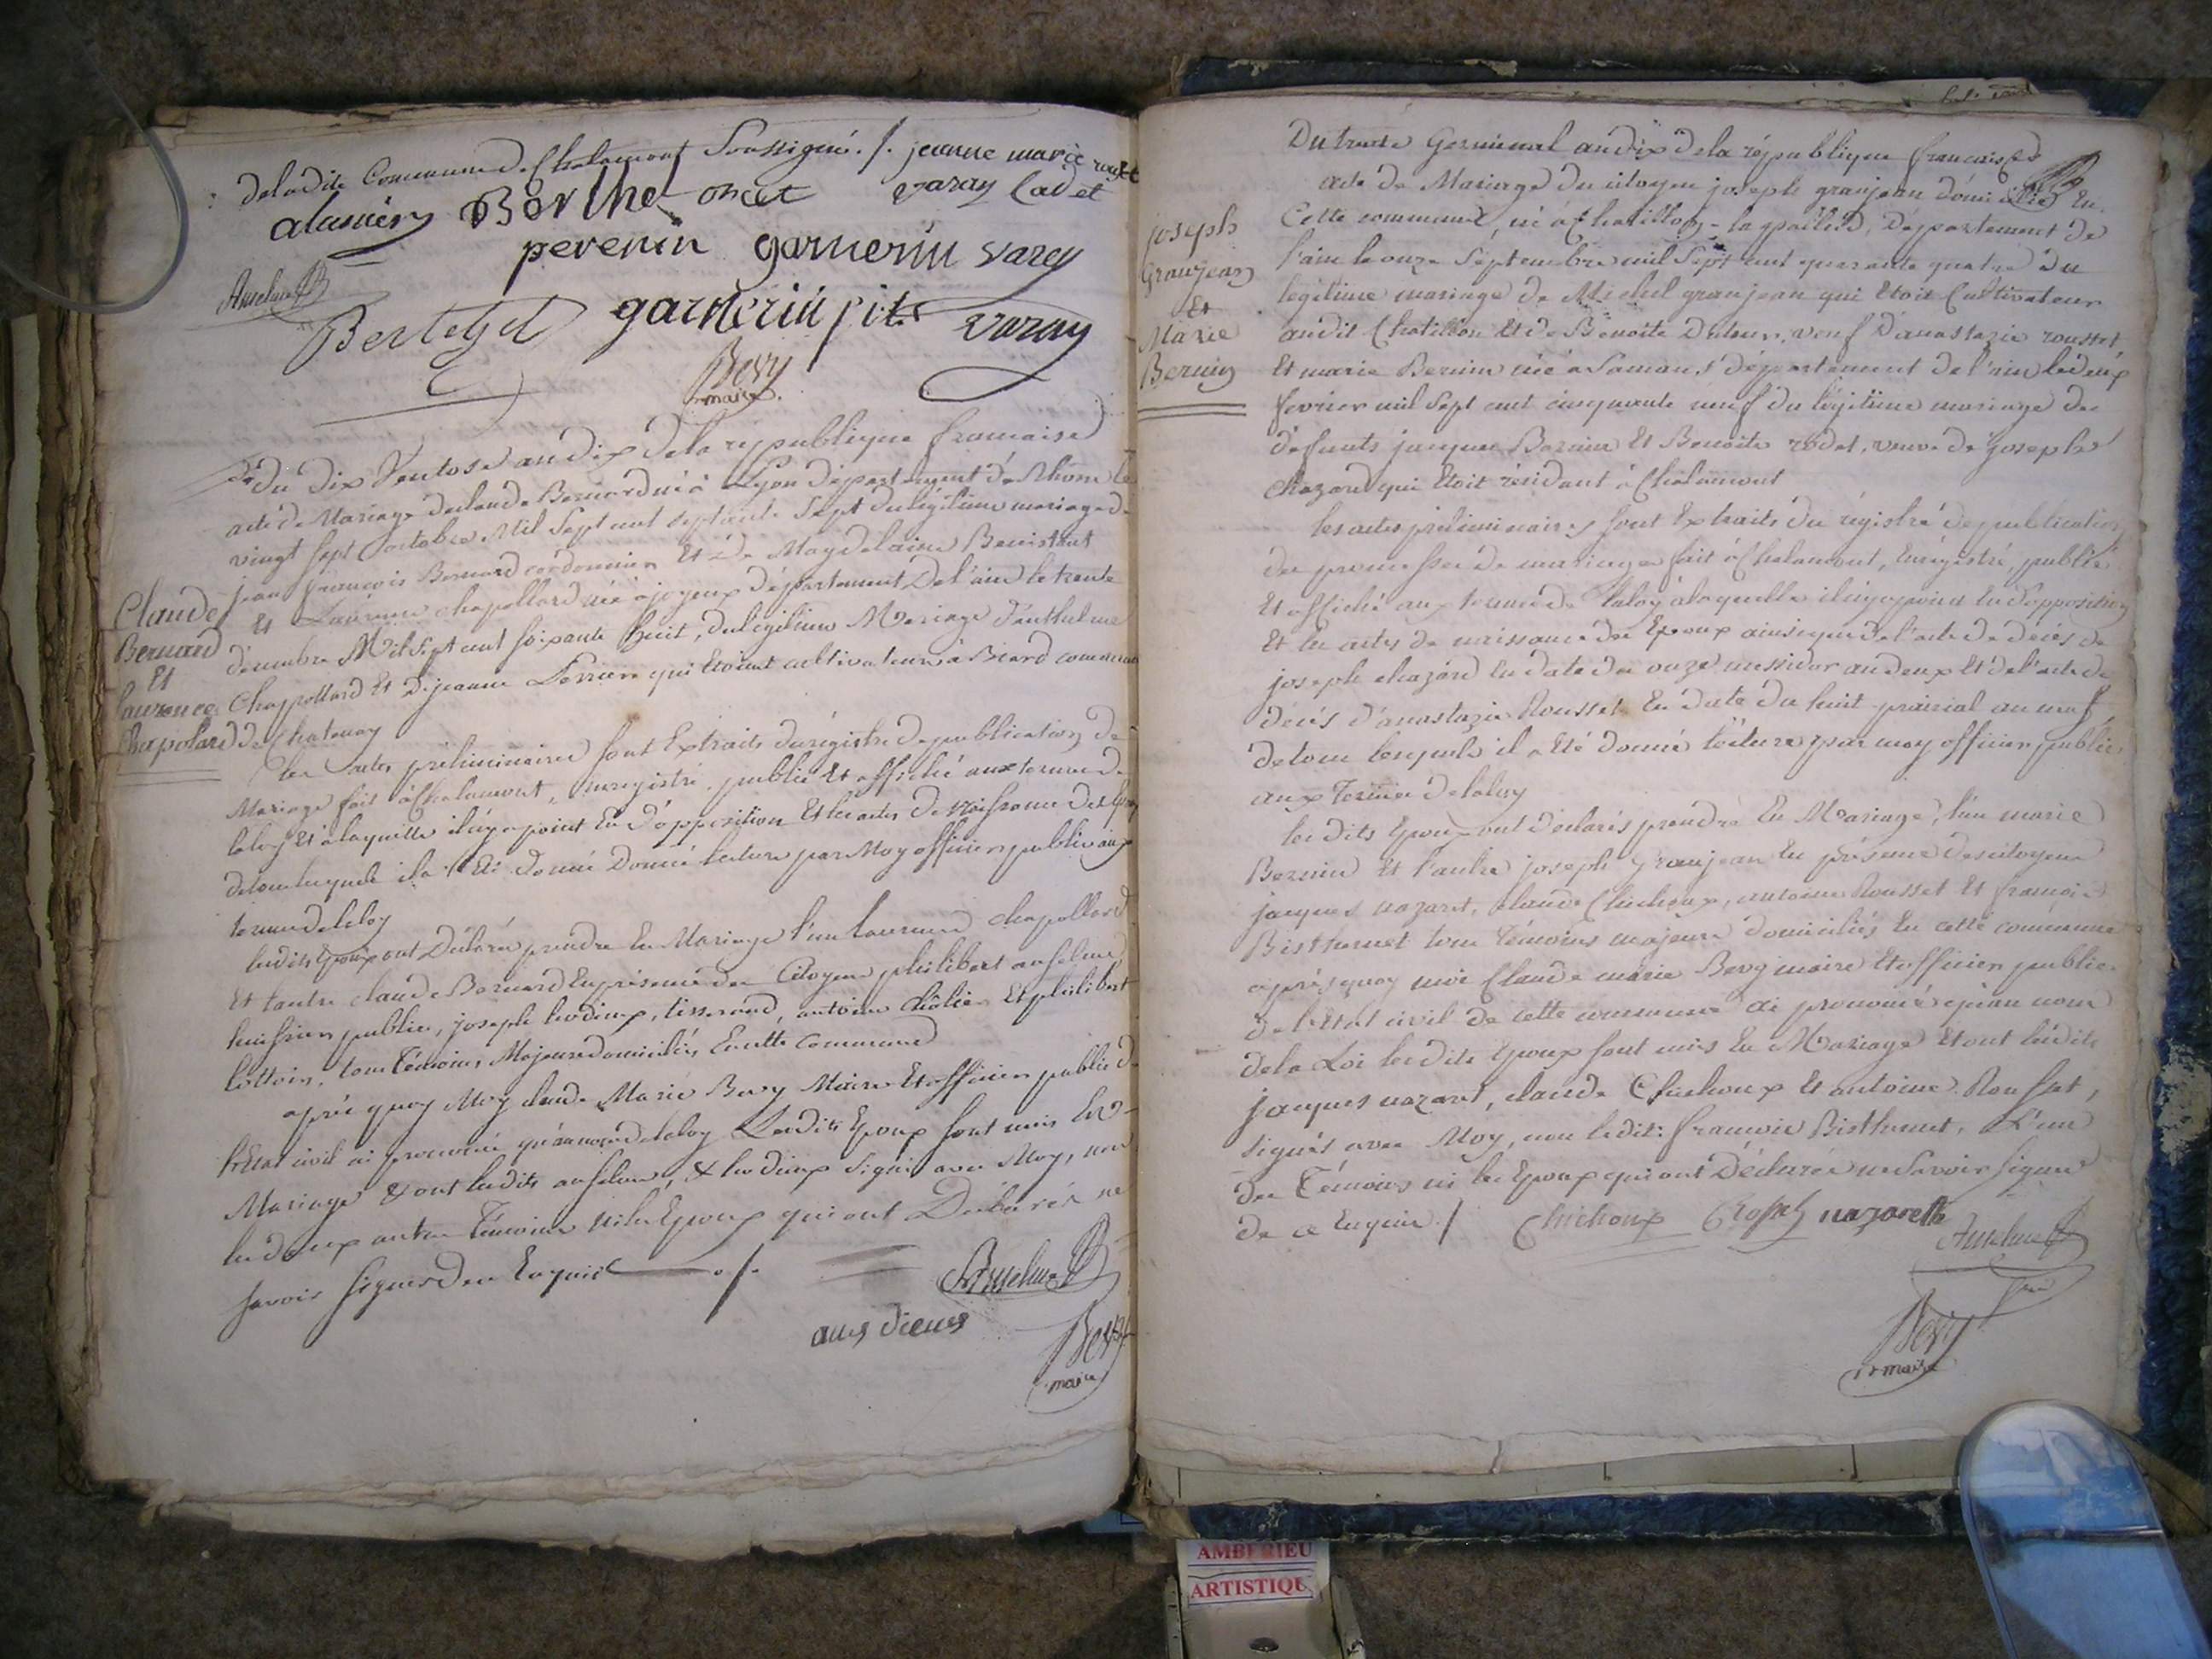 de la dite Commune de Chalamont Soussigné ./. jeanne marie
alasniery Berthet oncet varay Cadet
pevenin garnerin varey
Anselme
garnerin varay
Bevy
maire
du dix Ventose an dix de la republique francaise
acte de Mariage de claude Bernard né à Lyon département du Rhone le
vingt sept octobre Mil Sept cent septante sept du legitime mariage de
jean françois Bernard cordonnier Et de Magdelaine
Claude
Bernard
Et
Laurence
Chapolard
Et Laurence chapollard née à joyeux département de l'ain le trente
decembre Mil Sept cent soixante huit, du legitime Mariage d'anthelme
Chapollard Et de jeanne qui Etoient cultivateurs à Biard commune
de Chatenay
les actes préliminaires sont Extraits du régistre de publication de
Mariage fait à Chalamont, enregistré, publié Et affiché aux termes de
la loy Et à laquelle il n'y a point Eu d'opposition Et les actes de naissance des Epoux
de tous lesquels il a Eté donné Donné lecture par Moy officier public aux
termes de la loy
les dits Epoux ont Déclarés prendre En Mariage l'un Laurence chapollard
Et l'autre claude Bernard En présence des Citoyens philibert anselme
huissier public, joseph tisserand, antoine Et philibert
tous Témoins Majeurs domiciliés En cette Commune
après quoy Moy claude Marie Bevy Maire Et officier public de
l'Etat civil ai prononcé qu'au nom de la loy Les dits Epoux sont unis En
Mariage & ont les dits anselme, & signés avec Moy, non
les deux autres Témoins ni les Epoux qui ont Déclarés ne
savoir signer De ce Enquis ./.
Anselme
Bevy
maire
Du trente Germinal an dix de la république francaise
acte de Mariage du citoyen joseph granjean domicilié En
joseph
Granjean
Et
Marie
Bernin
Cette commune, né à Chatillon-la palud, Département de
l'ain le onze Septembre mil Sept cent quarante quatre du
légitime mariage de Michel granjean qui Etoit Cultivateur
audit Chatillon Et de Benoite veuf d'anastazie rousset,
Et marie Bernin née à Samans département de l'ain le deux
fevrier mil Sept cent cinquante neuf du légitime mariage des
défunts jacques Bernin Et Benoite rodet, veuve de joseph
chazard qui Etoit résidant à Chalamont
les actes préliminaires sont Extraits du régistre de publication
des promesses de mariage fait à Chalamont, Enrégistré, publié
Et affiché aux termes de la loy à laquelle il n'y a point Eu d'opposition
Et les actes de naissance des Epoux ainsi que de l'acte de décès de
joseph chazard En date du onze messidor an deux Et de l'acte de
décès d'anastazie Rousset En date du huit prairial an neuf
de tous lesquels il a Eté donné lecture par moy officier public
aux Termes de la loy
les dits Epoux ont déclarés prendre En Mariage, l'un marie
Bernin Et l'autre joseph granjean En présence des citoyens
jacques nazaret, claude Chichoux, antoine Rousset Et françois
Bisthernet tous témoins majeurs domiciliés En cette commune
après quoy moi Claude marie Bevy maire Et officier public
de l'Etat civil de cette commune ai prononcé qu'au nom
de la Loi les dits Epoux sont unis En Mariage Et ont les dits
jacques nazaret, claude Chichoux Et antoine Rousset,
signés avec Moy, non le dit francois Bisthernet, L'un
des Témoins ni les Epoux qui ont Déclarés ne Savoir signer
de ce Enquis ./. Chichoux nazareth
Anselme
Bevy
maire
AMBERIEU
ARTISTIQU